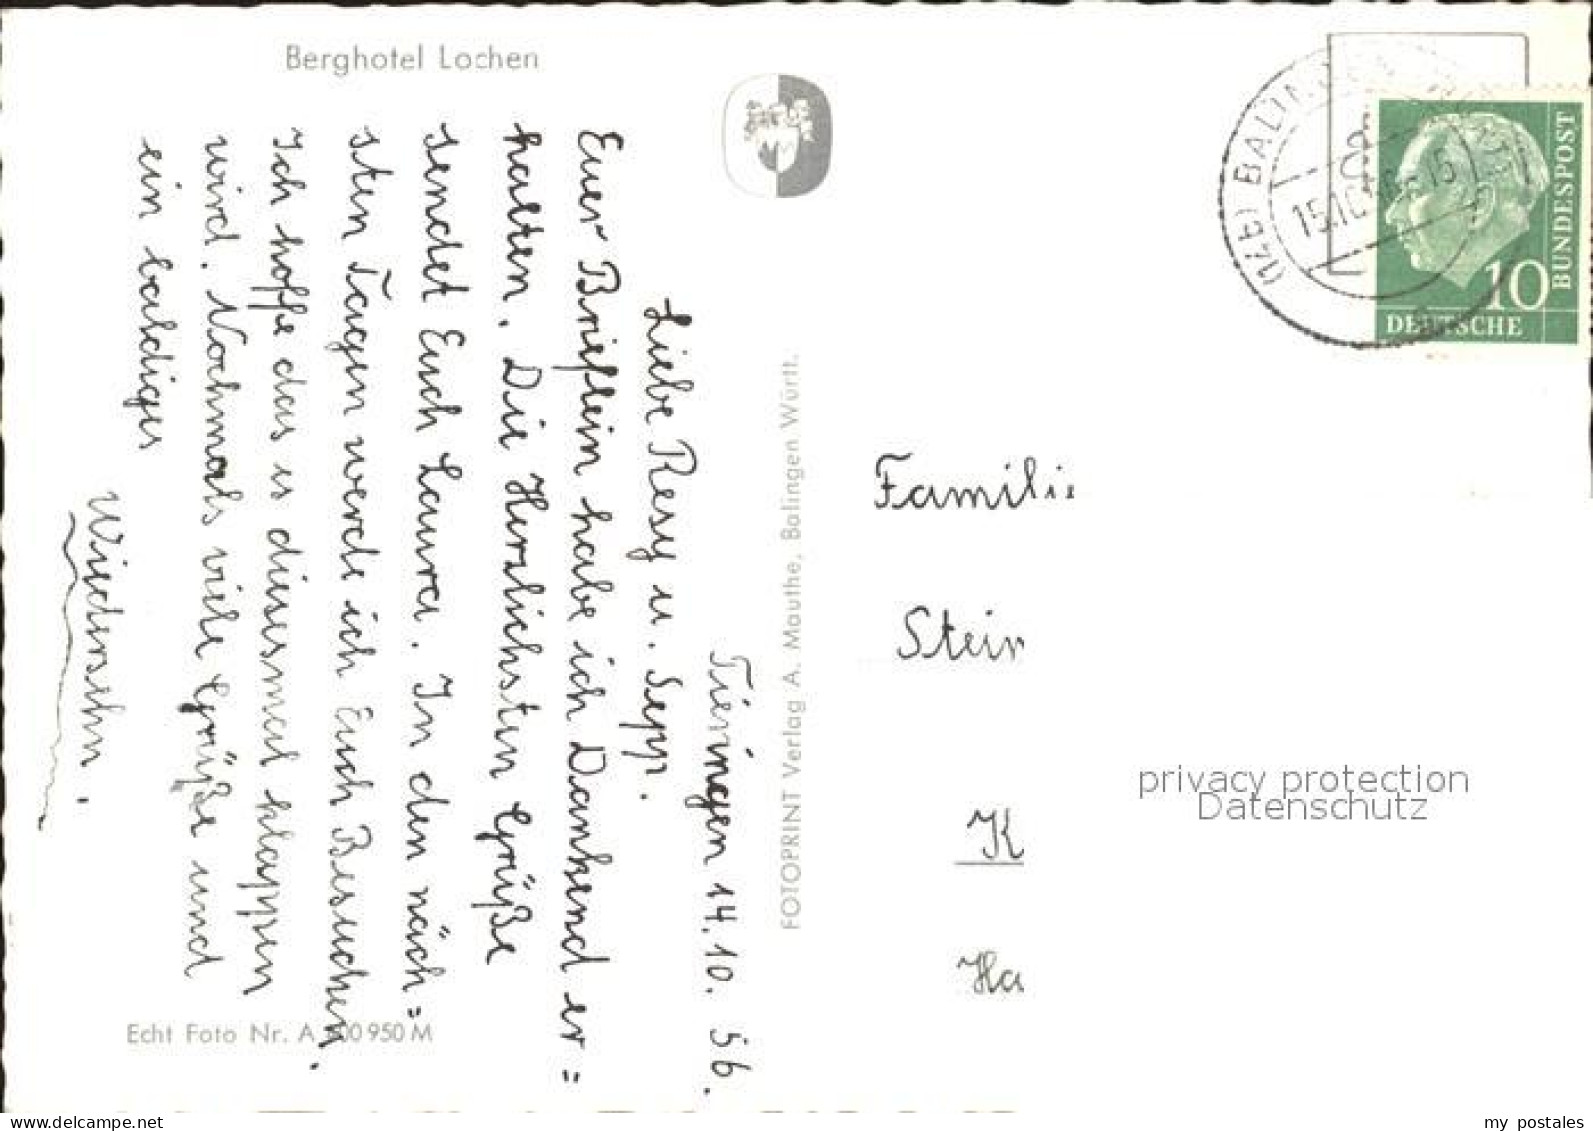 Berghotel Lochen
Tieringen 14.10.56.
Liebe Resy u. Sepp.
Euer Brieflein habe ich Dankend er=
halten. Die Herzlichsten Grüße
sendet Euch Laura. In den näch=
sten Tagen werde ich Euch Besuchen.
Ich hoffe das es diesesmal klappen
wird. Nochmals viele Grüße und
ein baldiges
Wiedersehn.
Echt Foto Nr. A 950 M
FOTOPRINT Verlag A. Mauthe, Balingen Württ.
(14b) BALINGEN
15.10.
10
DEUTSCHE
BUNDESPOST
Familie
Stein
K
Ha
privacy protection
Datenschutz
www.delcampe.net
my_postales